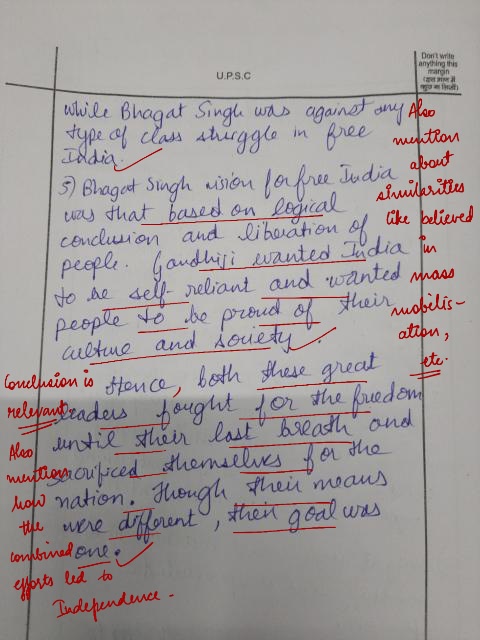 U.P.S.C
Don't write
anything this
margin
(इस भाग में
कुछ ना लिखें)
while Bhagat Singh was against any
type of class struggle in free
India.
5) Bhagat Singh vision for free India
was that based on logical
conclusion and liberation of
people. Gandhiji wanted India
to be self-reliant and wanted
people to be proud of their
culture and society.
Also
mention
about
similarities
like believed
in
mass
mobilis-
ation,
etc.
Hence, both these great
leaders fought for the freedom
until their last breath and
sacrificed themselves for the
nation. Though their means
were different, their goal was
one.
Conclusion is
relevant
Also
mention
how
the
combined
efforts led to
Independence.